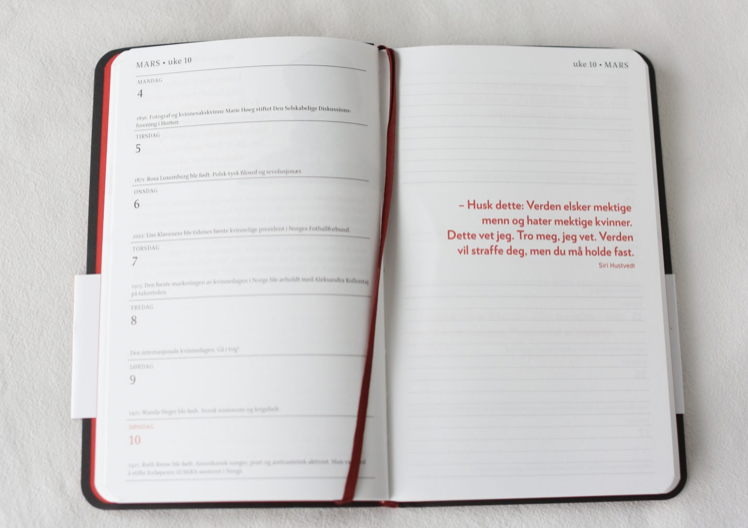 MARS • uke 10
MANDAG
4
1896: Fotograf og kvinnesakskvinne Marie Høeg stiftet Den Selskabelige Diskussions-
forening i Horten.
TIRSDAG
5
1871: Rosa Luxemburg ble født. Polsk-tysk filosof og revolusjonær.
ONSDAG
6
2022: Lise Klaveness ble tidenes første kvinnelige president i Norges Fotballforbund.
TORSDAG
7
Den første markeringen av kvinnedagen i Norge ble avholdt med Aleksandra Kollontaj
på talerstolen.
FREDAG
8
Den internasjonale kvinnedagen. Gå i tog!
LØRDAG
9
ble født. Norsk
SØNDAG
10
Ruth ble født. Amerikansk sanger, poet og
uke 10 • MARS
– Husk dette: Verden elsker mektige
menn og hater mektige kvinner.
Dette vet jeg. Tro meg, jeg vet. Verden
vil straffe deg, men du må holde fast.
Siri Hustvedt